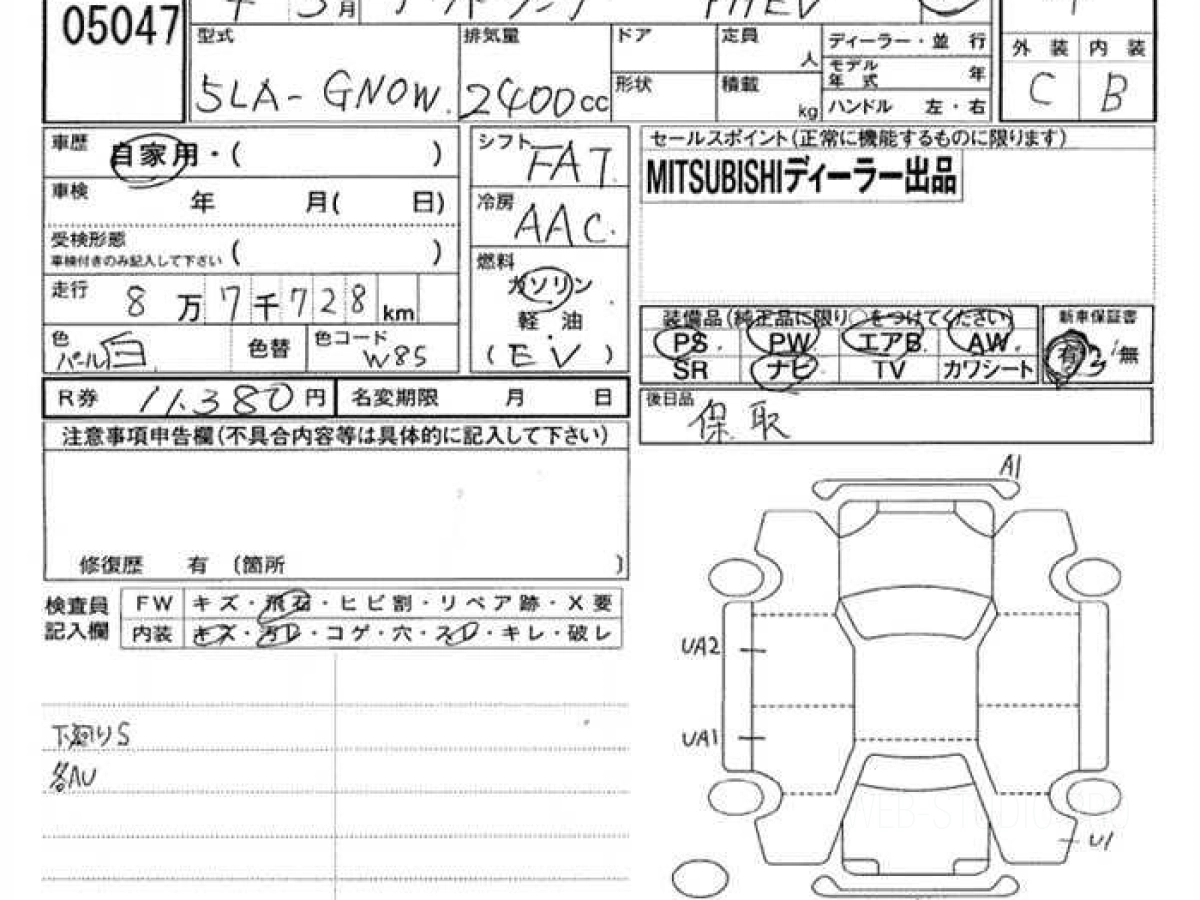 05047
月 PHEV
型式 排気量 ドア 定員 人 ディーラー・並 行
モデル年式 年
外 装 内 装
5LA-GN0W. 2400cc 形状 積載 kg ハンドル 左・右
C B
車歴 自家用・( )
車検 年 月( 日)
受検形態 ( )
車検付きのみ記入して下さい
走行 8万7千728km
色 パール白 色替 色コード W85
シフト FAT
冷房 AAC.
燃料 ガソリン
軽・油
(EV)
セールスポイント(正常に機能するものに限ります)
MITSUBISHIディーラー出品
装備品(純正品に限り○をつけてください) 新車保証書
PS PW エアB AW 有 無
SR ナビ TV カワシート
R券 11.380円 名変期限 月 日
後日品 保.取
注意事項申告欄(不具合内容等は具体的に記入して下さい)
修復歴 有 (箇所 )
検査員記入欄 FW キズ・飛石・ヒビ割・リペア跡・X要
内装 キズ・汚レ・コゲ・穴・スレ・キレ・破レ
下廻りS
各AU
A1
UA2
UA1
U1